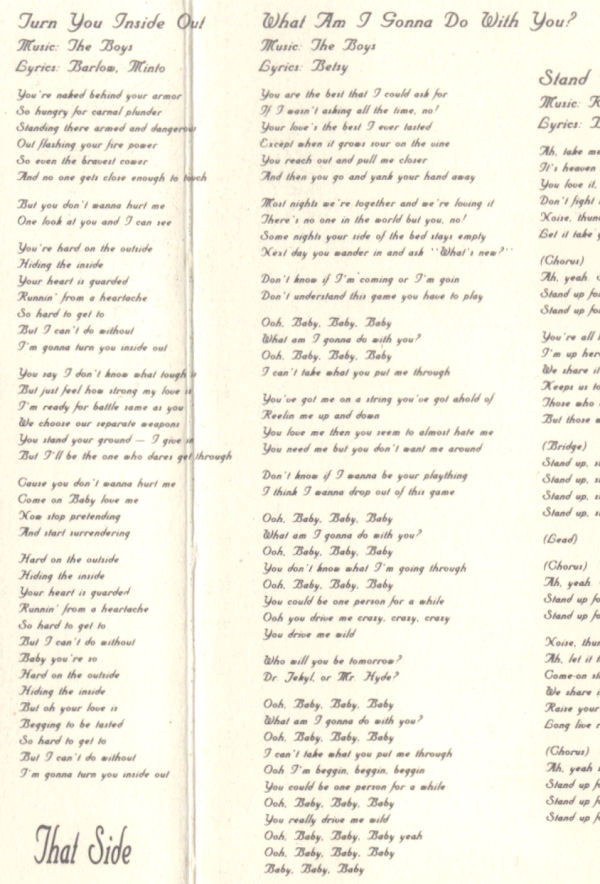 Turn You Inside Out
Music: The Boys
Lyrics: Barlow, Minto
You're naked behind your armor
So hungry for carnal plunder
Standing there armed and dangerous
Out flashing your fire power
So even the bravest cower
And no one gets close enough to touch
But you don't wanna hurt me
One look at you and I can see
You're hard on the outside
Hiding the inside
Your heart is guarded
Runnin' from a heartache
So hard to get to
But I can't do without
I'm gonna turn you inside out
You say I don't know what tough is
But just feel how strong my love is
I'm ready for battle same as you
We choose our separate weapons
You stand your ground — I give in
But I'll be the one who dares get through
Cause you don't wanna hurt me
Come on Baby love me
Now stop pretending
And start surrendering
Hard on the outside
Hiding the inside
Your heart is guarded
Runnin' from a heartache
So hard to get to
But I can't do without
Baby you're so
Hard on the outside
Hiding the inside
But oh your love is
Begging to be tasted
So hard to get to
But I can't do without
I'm gonna turn you inside out
That Side
What Am I Gonna Do With You?
Music: The Boys
Lyrics: Betsy
You are the best that I could ask for
If I wasn't asking all the time, no!
Your love's the best I ever tasted
Except when it grows sour on the vine
You reach out and pull me closer
And then you go and yank your hand away
Most nights we're together and we're loving it
There's no one in the world but you, no!
Some nights your side of the bed stays empty
Next day you wander in and ask "What's new?"
Don't know if I'm coming or I'm goin
Don't understand this game you have to play
Ooh, Baby, Baby, Baby
What am I gonna do with you?
Ooh, Baby, Baby, Baby
I can't take what you put me through
You've got me on a string you've got ahold of
Reelin me up and down
You love me then you seem to almost hate me
You need me but you don't want me around
Don't know if I wanna be your plaything
I think I wanna drop out of this game
Ooh, Baby, Baby, Baby
What am I gonna do with you?
Ooh, Baby, Baby, Baby
You don't know what I'm going through
Ooh, Baby, Baby, Baby
You could be one person for a while
Ooh you drive me crazy, crazy, crazy
You drive me wild
Who will you be tomorrow?
Dr. Jekyl, or Mr. Hyde?
Ooh, Baby, Baby, Baby
What am I gonna do with you?
Ooh, Baby, Baby, Baby
I can't take what you put me through
Ooh I'm beggin, beggin, beggin
You could be one person for a while
Ooh, Baby, Baby, Baby
You really drive me wild
Ooh, Baby, Baby, Baby yeah
Ooh, Baby, Baby, Baby
Baby, Baby, Baby
Stand
Music:
Lyrics:
Ah, take me
It's heaven
You love it,
Don't fight
Noise,
Let it take
(Chorus)
Ah, yeah
Stand up
Stand up
You're all
I'm up
We share it
Keeps us to
Those who
But those
(Bridge)
Stand up,
Stand up,
Stand up,
Stand up,
(Lead)
(Chorus)
Ah, yeah
Stand up
Stand up
Noise,
Ah, let it
Come-on
We share
Raise your
Long live
(Chorus)
Ah, yeah
Stand up
Stand up
Stand up